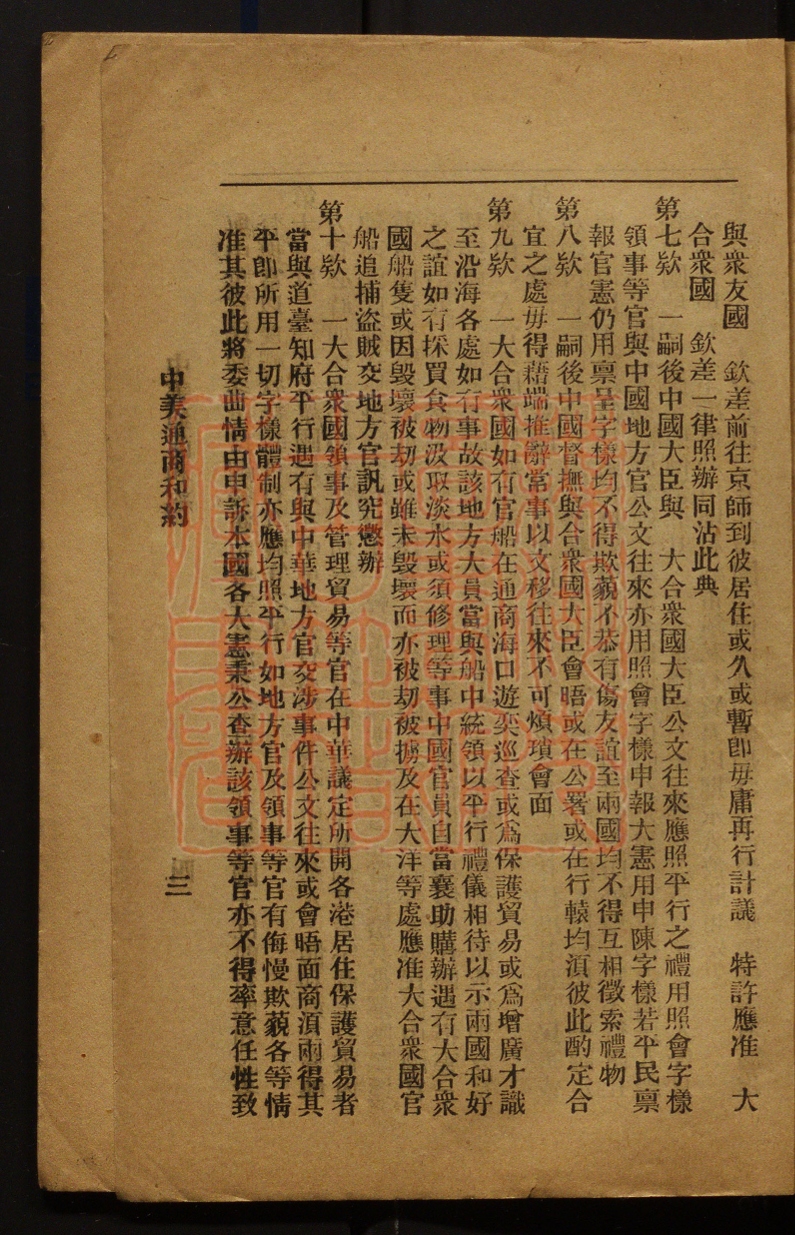 與衆友國　欽差前往京師到彼居住或久或暫即毋庸再行計議　特許應准　大
合衆國　欽差一律照辦同沾此典
第七欵　一嗣後中國大臣與　大合衆國大臣公文往來應照平行之禮用照會字樣
領事等官與中國地方官公文往來亦用照會字樣申報大憲用申陳字樣若平民禀
報官憲仍用禀呈字樣均不得欺藐不恭有傷友誼至兩國均不得互相徵索禮物
第八欵　一嗣後中國督撫與合衆國大臣會晤或在公署或在行轅均湏彼此酌定合
宜之處毋得藉端推辭當事以文移往來不可煩瑣會面
第九欵　一大合衆國如有官船在通商海口遊奕巡查或爲保護貿易或爲增廣才識
至沿海各處如有事故該地方大員當與船中統領以平行禮儀相待以示兩國和好
之誼如有採買食物汲取淡水或須修理等事中國官員自當襄助購辦遇有大合衆
國船隻或因毀壞被劫或雖未毀壞而亦被劫被擄及在大洋等處應准大合衆國官
船追捕盜賊交地方官訊究懲辦
第十欵　一大合衆國領事及管理貿易等官在中華議定所開各港居住保護貿易者
當與道臺知府平行遇有與中華地方官交涉事件公文往來或會晤面商湏兩得其
平即所用一切字樣體制亦應均照平行如地方官及領事等官有侮慢欺藐各等情
准其彼此將委曲情由申訴本國各大憲秉公查辦該領事等官亦不得率意任性致
中美通商和約
三